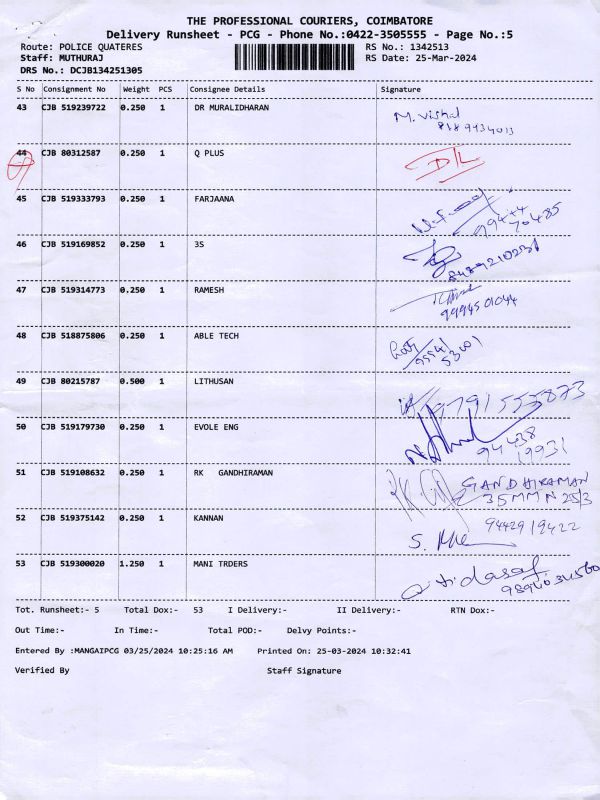 THE PROFESSIONAL COURIERS, COIMBATORE
Delivery Runsheet - PCG - Phone No.:0422-3505555 - Page No.:5
Route: POLICE QUATERES RS No.: 1342513
Staff: MUTHURAJ RS Date: 25-Mar-2024
DRS No.: DCJB134251305
S No Consignment No Weight PCS Consignee Details Signature
43 CJB 519239722 0.250 1 DR MURALIDHARAN M. Vishal
44 CJB 80312587 0.250 1 Q PLUS D/L
45 CJB 519333793 0.250 1 FARJAANA
99444
70485
46 CJB 519169852 0.250 1 3S
8489210231
47 CJB 519314773 0.250 1 RAMESH
9994501044
48 CJB 518875806 0.250 1 ABLE TECH
49 CJB 80215787 0.500 1 LITHUSAN
9791555873
50 CJB 519179730 0.250 1 EVOLE ENG
94438
19931
51 CJB 519108632 0.250 1 RK GANDHIRAMAN RK GANDHIRAMAN
35 MMN 25/3
52 CJB 519375142 0.250 1 KANNAN 9442919422
S.
53 CJB 519300020 1.250 1 MANI TRDERS
Tot. Runsheet:- 5 Total Dox:- 53 I Delivery:- II Delivery:- RTN Dox:-
Out Time:- In Time:- Total POD:- Delvy Points:-
Entered By :MANGAIPCG 03/25/2024 10:25:16 AM Printed On: 25-03-2024 10:32:41
Verified By Staff Signature